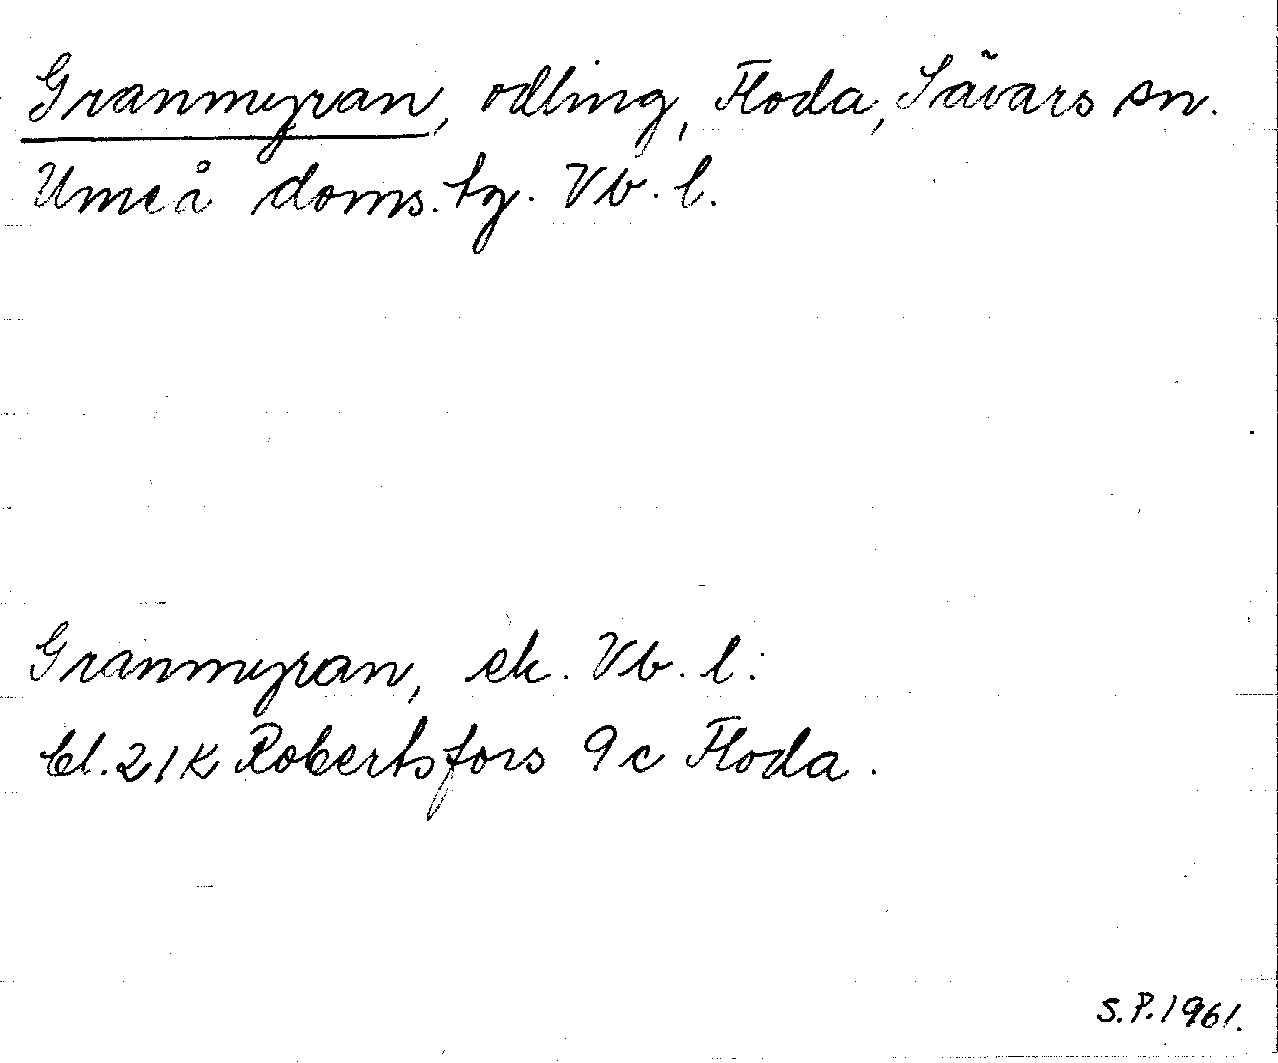 Granmyran, odling, Floda, Sävars sn.
Umeå doms. tg. Vb. l.
Granmyran, ek. Vb. l.
bl. 21K Robertsfors 9c Floda.
S.P. 1961.